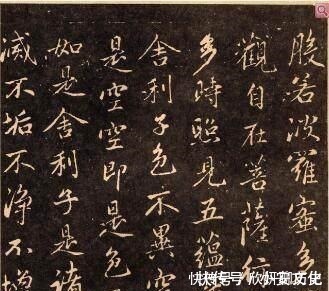 般若波羅蜜多
觀自在菩薩行
多時照見五蘊
舍利子色不異空
是空空即是色
如是舍利子是諸
滅不垢不淨不增